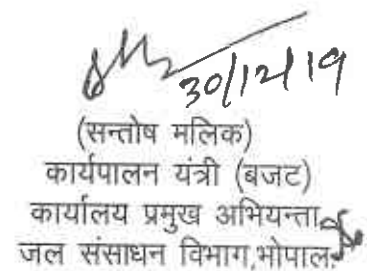 30/12/19
(सन्तोष मलिक)
कार्यपालन यंत्री (बजट)
कार्यालय प्रमुख अभियन्ता
जल संसाधन विभाग,भोपाल.